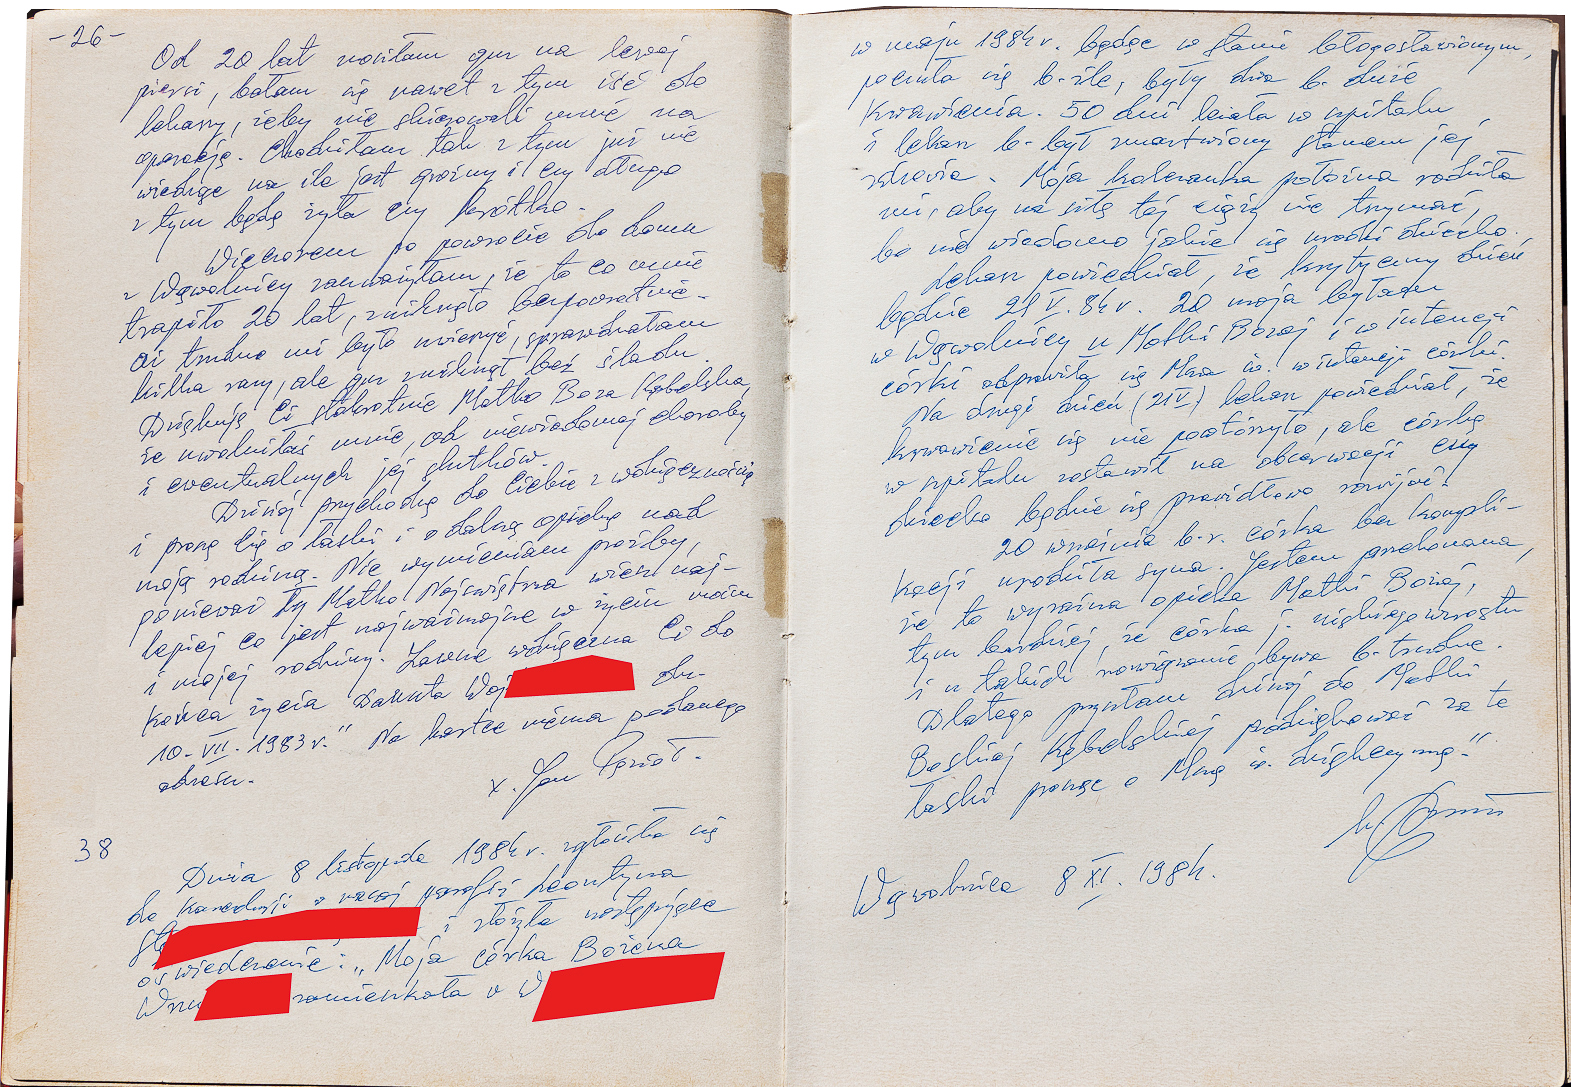 -26-
Od 20 lat nosiłam guz na lewej
piersi, bałam się nawet z tym iść do
lekarzy, żeby nie skierowali mnie na
operację. Chodziłam tak z tym już nie
wiedząc na ile jest groźny i czy długo
z tym będę żyła czy krótko.
Wieczorem po powrocie do domu
z Wąwolnicy zauważyłam, że to co mnie
trapiło 20 lat, zniknęło bezpowrotnie.
Aż trudno mi było uwierzyć, sprawdzałam
kilka razy, ale guz zniknął bez śladu.
Dziękuję Ci stokrotnie Matko Boża Kębelska,
że uwolniłaś mnie, od niewiadomej choroby
i ewentualnych jej skutków.
Dzisiaj przychodzę do Ciebie z wdzięcznością
i proszę Cię o łaski i o dalszą opiekę nad
moją rodziną. Nie wymieniam prośby,
ponieważ Ty Matko Najświętsza wiesz naj-
lepiej co jest najważniejsze w życiu moim
i mojej rodziny. Zawsze wdzięczna Ci do
końca życia Danuta Woj dn.
10. VII. 1983 r." Na kartce nie ma podanego
adresu.
x. Jan
38
Dnia 8 listopada 1984 r. zgłosiła się
do Kancelarii z naszej parafii Leontyna
i złożyła następujące
oświadczenie: „Moja córka Bożena
zamieszkała w W
w maju 1984 r. będąc w stanie błogosławionym,
poczuła się b. źle, były dwa b. duże
krwawienia. 50 dni leżała w szpitalu
i lekarz b. był zmartwiony stanem jej
zdrowia. Moja koleżanka położna radziła
mi, aby na siłę tej ciąży nie trzymać,
bo nie wiadomo jakie się urodzi dziecko.
Lekarz powiedział, że krytyczny dzień
będzie 21 V. 84 r. 20 maja byłam
w Wąwolnicy u Matki Bożej i w intencji
córki odprawiła się Msza św. w intencji córki.
Na drugi dzień (21 V) lekarz powiedział, że
krwawienie się nie powtórzyło, ale córkę
w szpitalu zostawił na obserwacji czy
dziecko będzie się prawidłowo rozwijać.
20 września b.r. córka bez kompli-
kacji urodziła syna. Jestem przekonana,
że to wyraźna opieka Matki Bożej,
tym bardziej, że córka j. niskiego wzrostu
i u takich rozwiązanie bywa b. trudne.
Dlatego przyszłam dzisiaj do Matki
Boskiej Kębelskiej podziękować za te
łaski prosząc o Mszę św. dziękczynną."
Wąwolnica 8 XI. 1984.